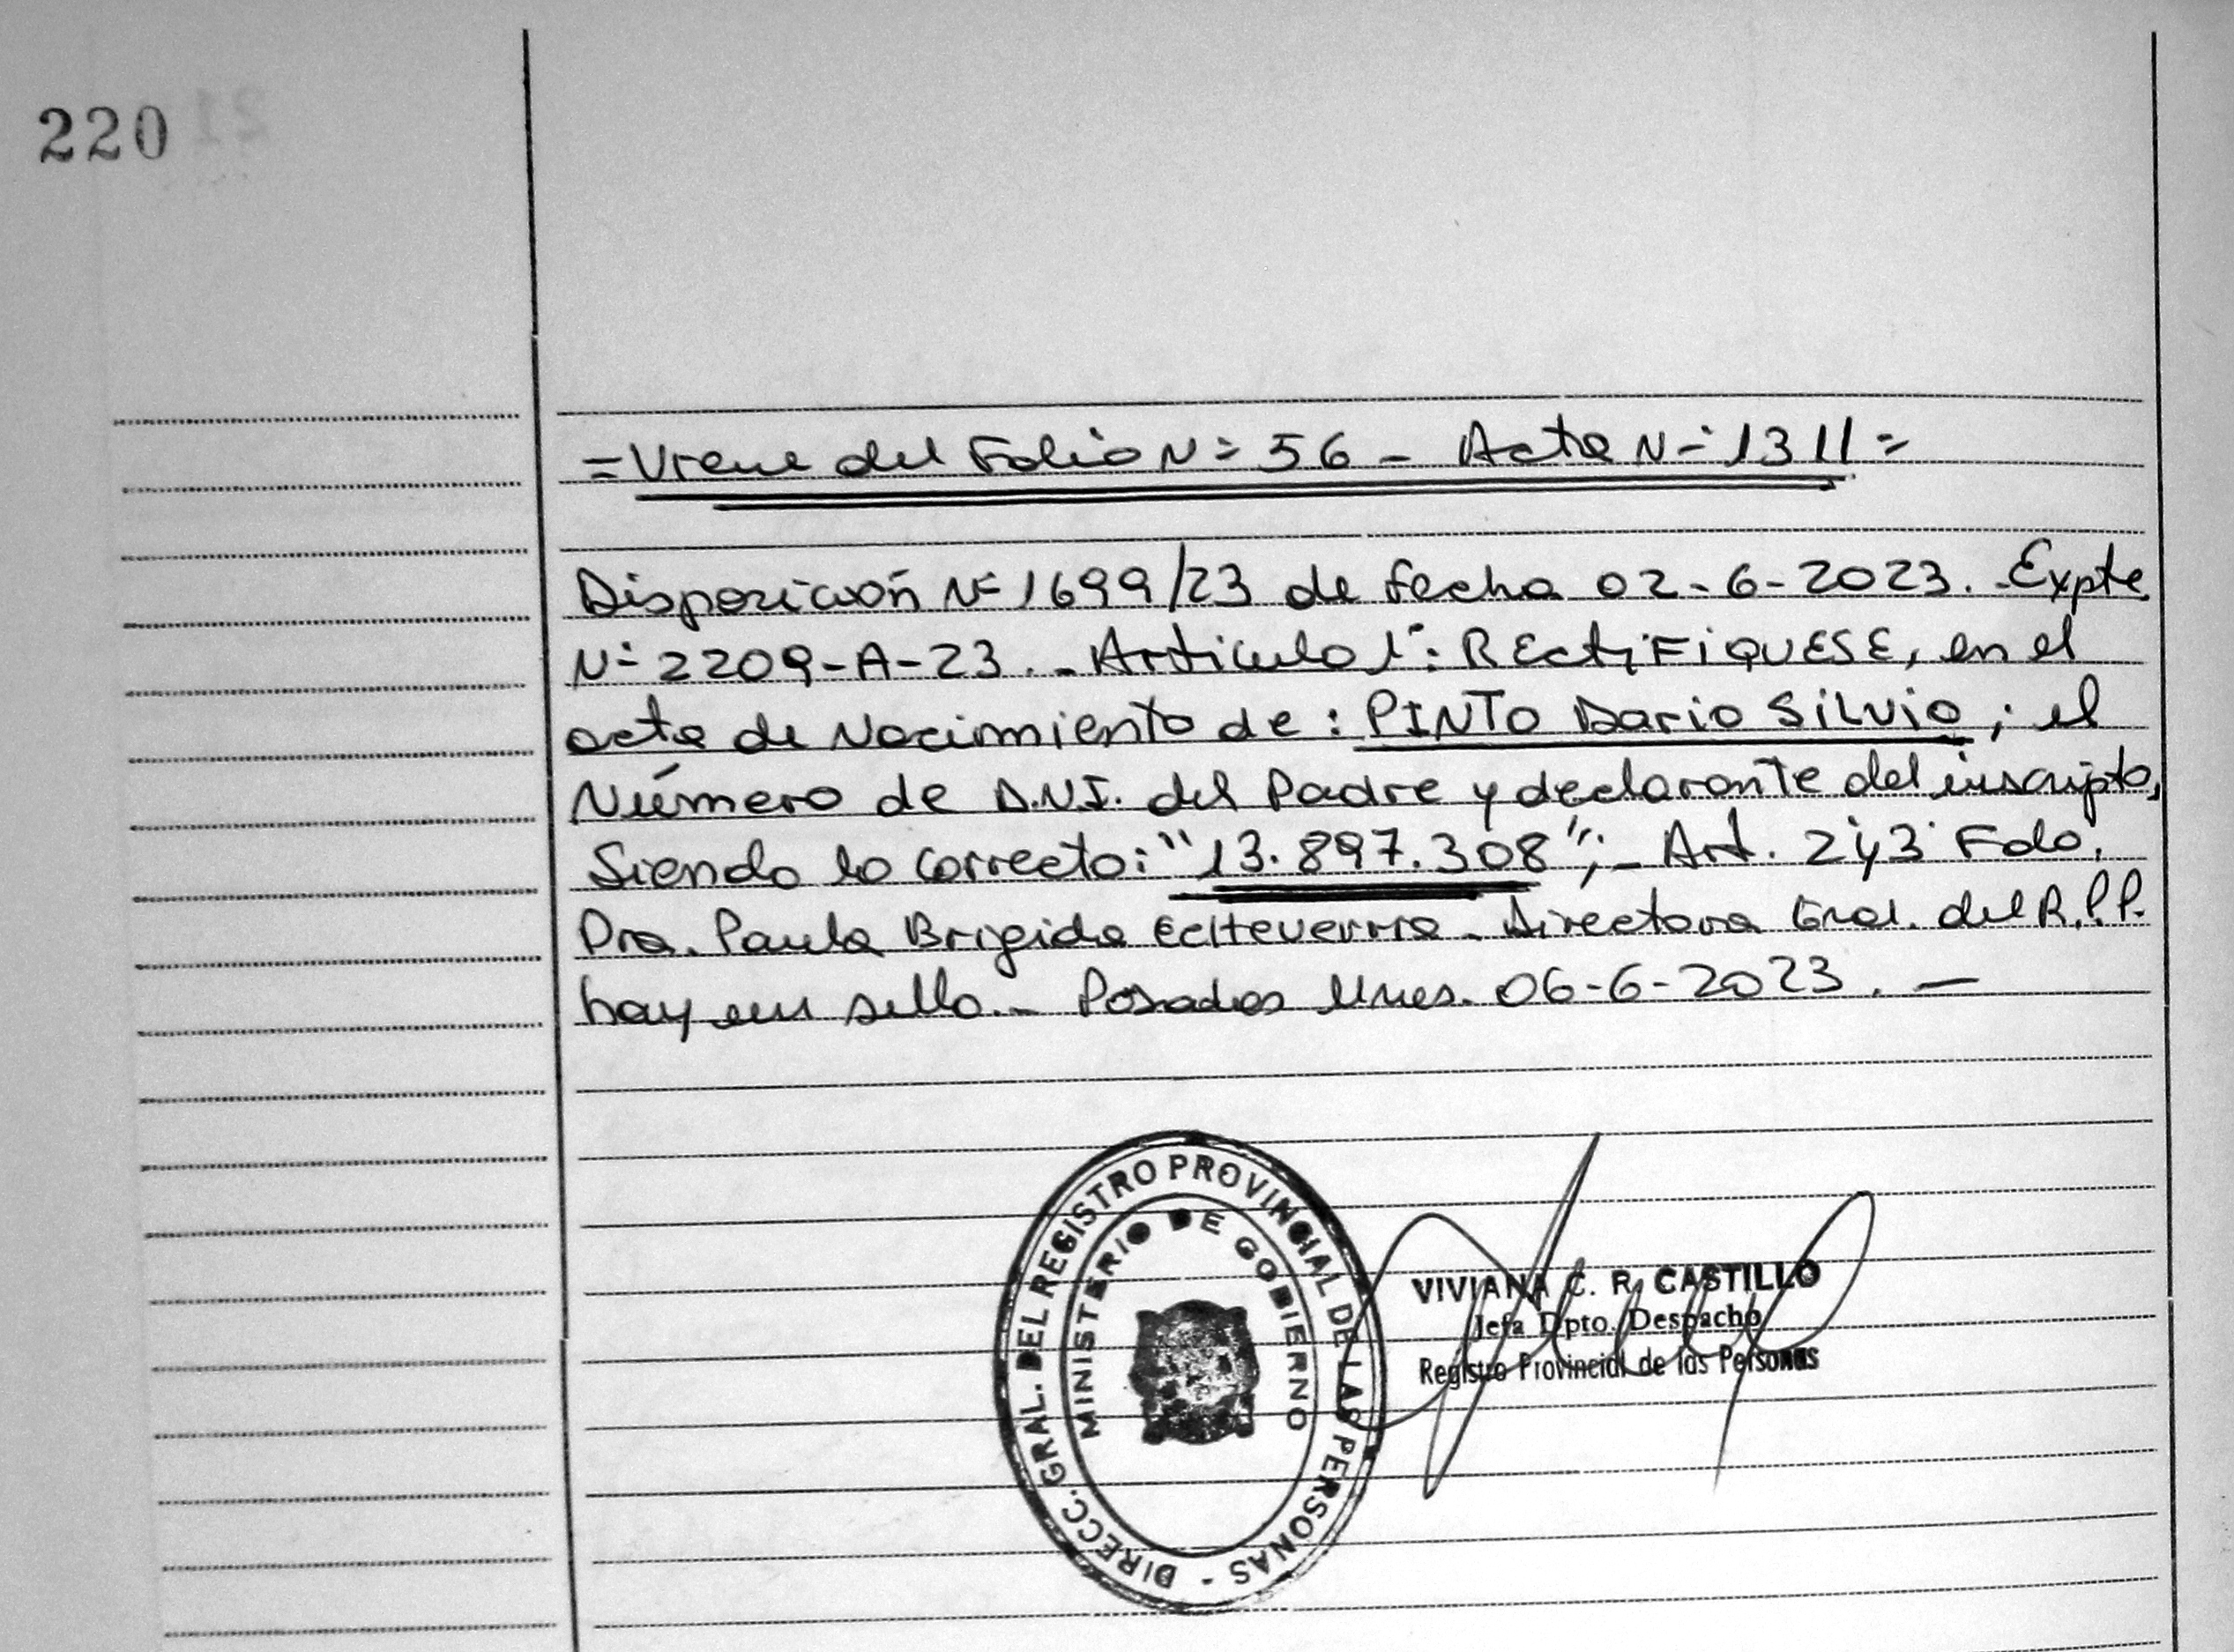 220
=Viene del Folio N° 56 - Acta N° 1311=
Disposición N° 1699/23 de fecha 02-6-2023. Expte
N° 2209-A-23.- Articulo 1°: RECtiFIQUESE, en el
acta de Nacimiento de: PINTO Dario SiLvio; el
Número de D.N.I. del Padre y declarante del inscripto,
Siendo lo correcto: "13.897.308";- Art. 2 y 3 Fdo.
Dra. Paula Brigida Echeverria - Directora Gral. del R.P.P.
hay un sello.- Posadas Mnes. 06-6-2023. —
DIRECC. GRAL. DEL REGISTRO PROVINCIAL DE LAS PERSONAS -
MINISTERIO DE GOBIERNO
VIVIANA C. R. CASTILLO
Jefa Dpto. Despacho
Registro Provincial de las Personas